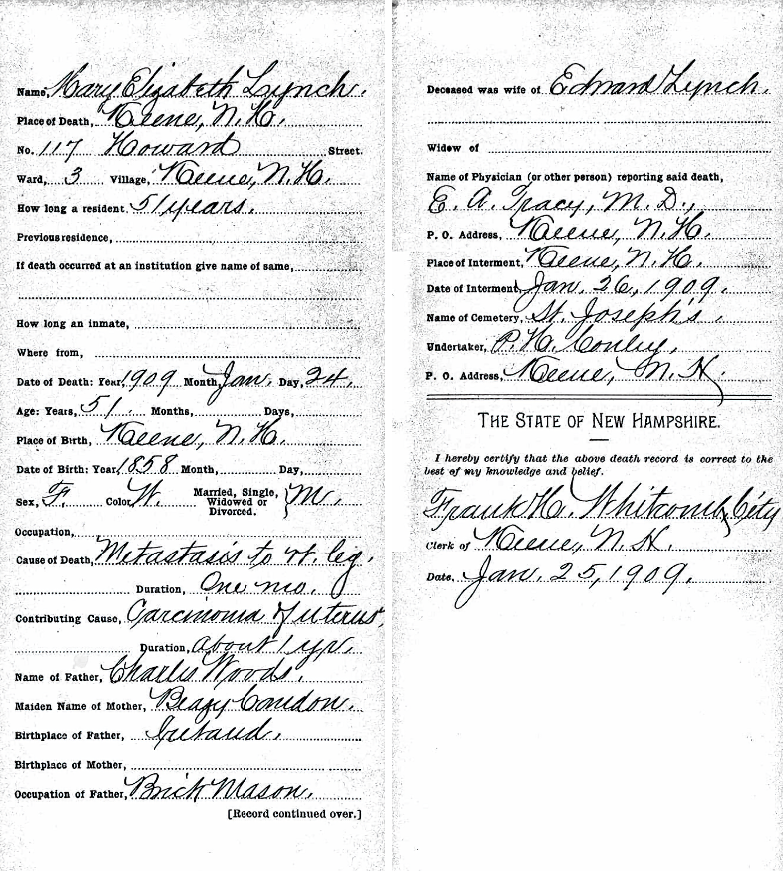 Name, Mary Elizabeth Lynch.
Place of Death, Keene, N. H.
No. 117 Howard Street.
Ward, 3 Village, Keene, N. H.
How long a resident. 51 years.
Previous residence,
If death occurred at an institution give name of same,
How long an inmate,
Where from,
Date of Death: Year, 1909 Month, Jan. Day, 24.
Age: Years, 51. Months, Days,
Place of Birth, Keene, N. H.
Date of Birth: Year, 1858 Month, Day,
Sex, F. Color, W. Married, Single, Widowed or Divorced. } M.
Occupation,
Cause of Death, Metastasis to rt. leg.
Duration, One mo.
Contributing Cause, Carcinoma of uterus.
Duration, about 1 yr.
Name of Father, Charles Woods.
Maiden Name of Mother,
Birthplace of Father, Ireland.
Birthplace of Mother,
Occupation of Father, Brick Mason.
[Record continued over.]
Deceased was wife of Edward Lynch.
Widow of
Name of Physician (or other person) reporting said death,
E. A. Tracy, M. D.,
P. O. Address, Keene, N. H.
Place of Interment, Keene, N. H.
Date of Interment, Jan. 26, 1909.
Name of Cemetery, St. Joseph's.
Undertaker, P. H. Conley,
P. O. Address, Keene, N. H.
THE STATE OF NEW HAMPSHIRE.
I hereby certify that the above death record is correct to the
best of my knowledge and belief.
Frank H. Whitcomb, City
Clerk of Keene, N. H.
Date, Jan. 25, 1909.